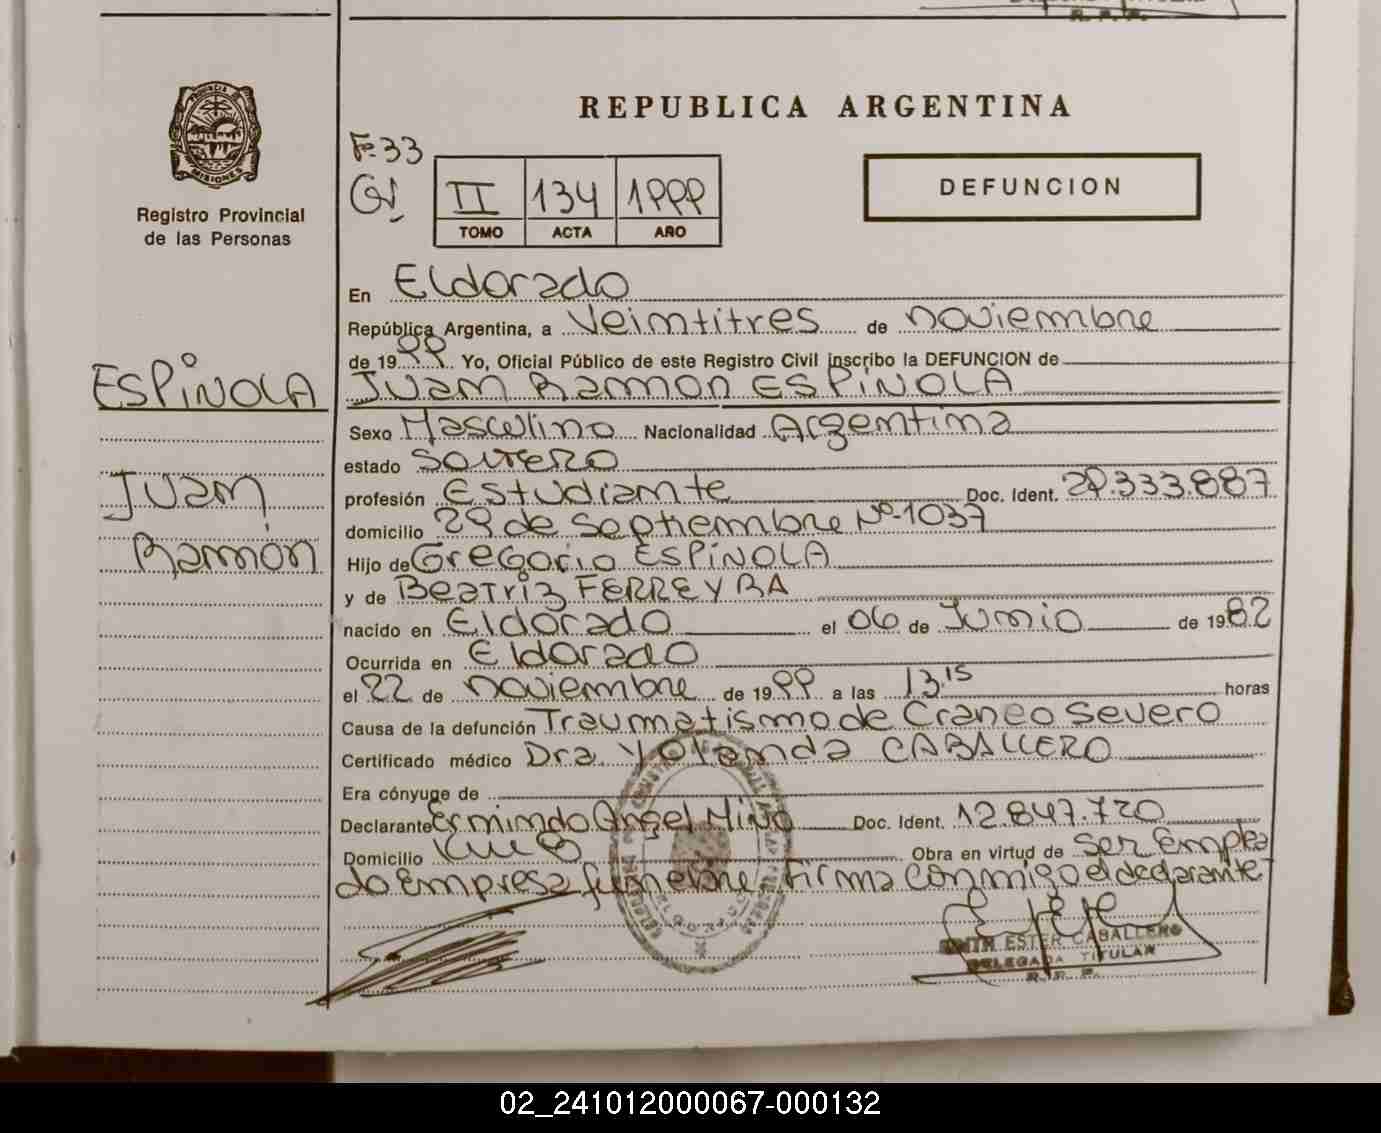 REPUBLICA ARGENTINA
PROVINCIA DE
MISIONES
Registro Provincial
de las Personas
F:33
II 134 1999
TOMO ACTA AÑO
DEFUNCION
ESPINOLA
Juan
Ramón
En Eldorado
República Argentina, a Veintitres de noviembre
de 1999. Yo, Oficial Público de este Registro Civil inscribo la DEFUNCION de
Juan Ramon ESPINOLA
Sexo Masculino Nacionalidad Argentina
estado Soltero
profesión Estudiante Doc. Ident. 29.333.887
domicilio 29 de Septiembre Nº 1037
Hijo de Gregorio ESPINOLA
y de Beatriz FERREYRA
nacido en Eldorado el 06 de Junio de 1982
Ocurrida en Eldorado
el 22 de noviembre de 1999 a las 13.15 horas
Causa de la defunción Traumatismo de Craneo Severo
Certificado médico Dra. Yolanda CABALLERO
Era cónyuge de
Declarante Ermindo Angel Mino Doc. Ident. 12.847.720
Domicilio Obra en virtud de Ser Emplea
do Empresa funebre, firma conmigo el declarante
ESTER CABALLERO
DELEGADA TITULAR
R.P.P.
02_241012000067-000132